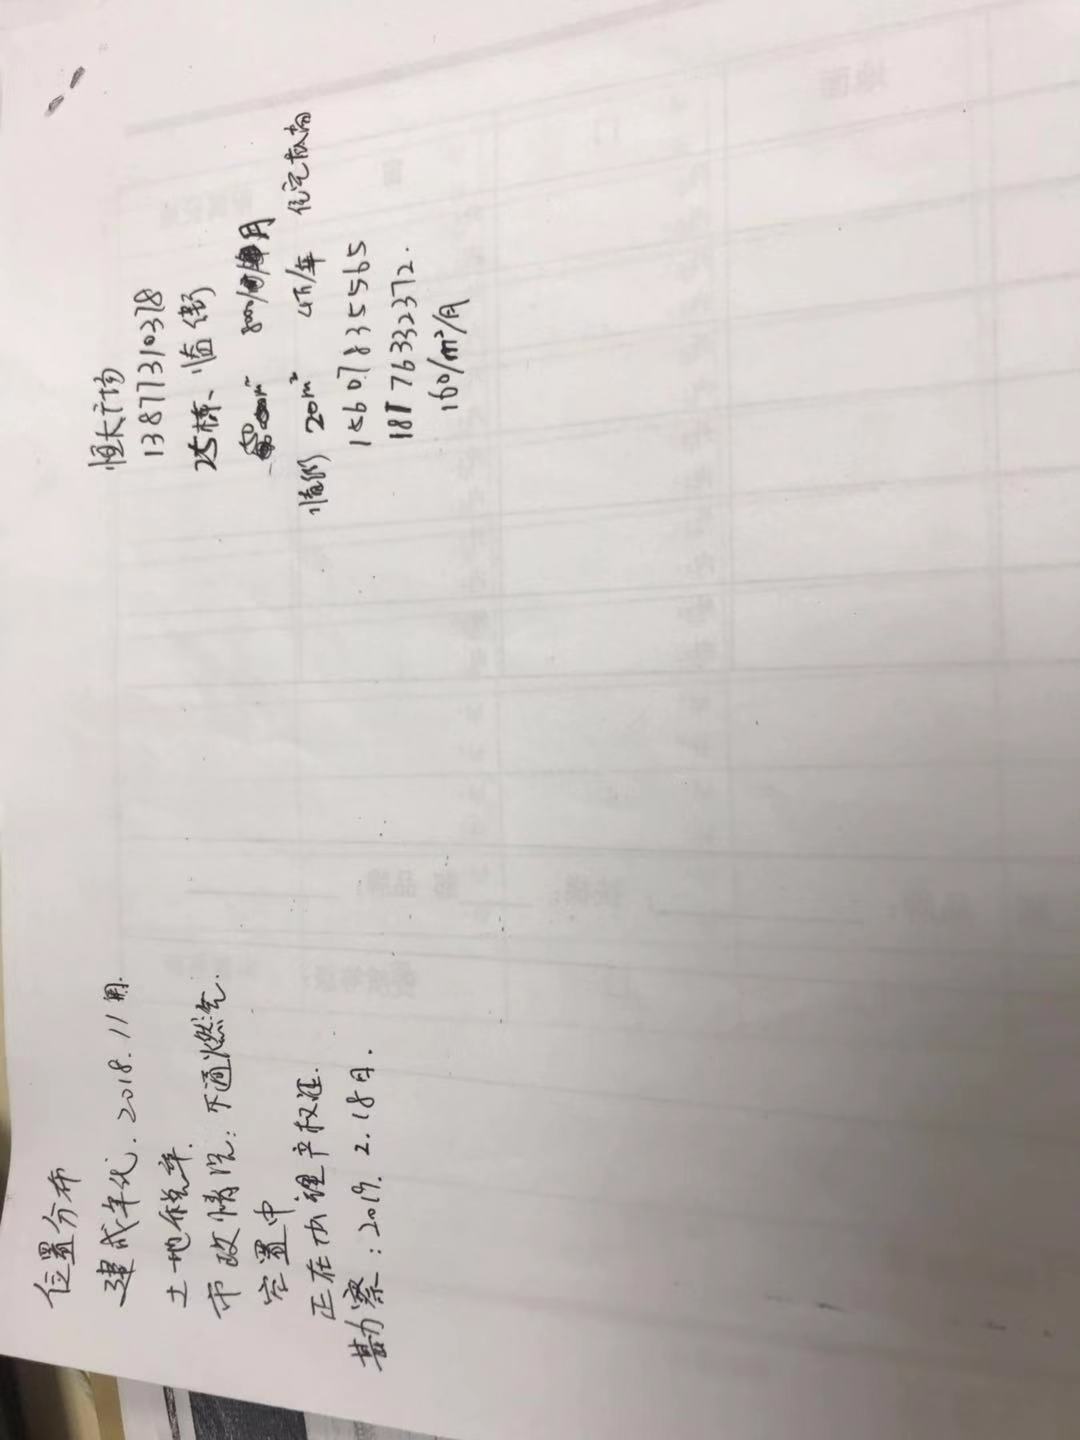 位置分布
建成年代.2018.11月.
土地税率.
市政情况:不通燃气.
空置中
正在办理产权证.
勘察:2019.2.18日.
恒大广场
13877310378
25栋、临街
50m² 8000/月
临街 20m² 4万/年
15607835565
18176332372.
160/m²/月